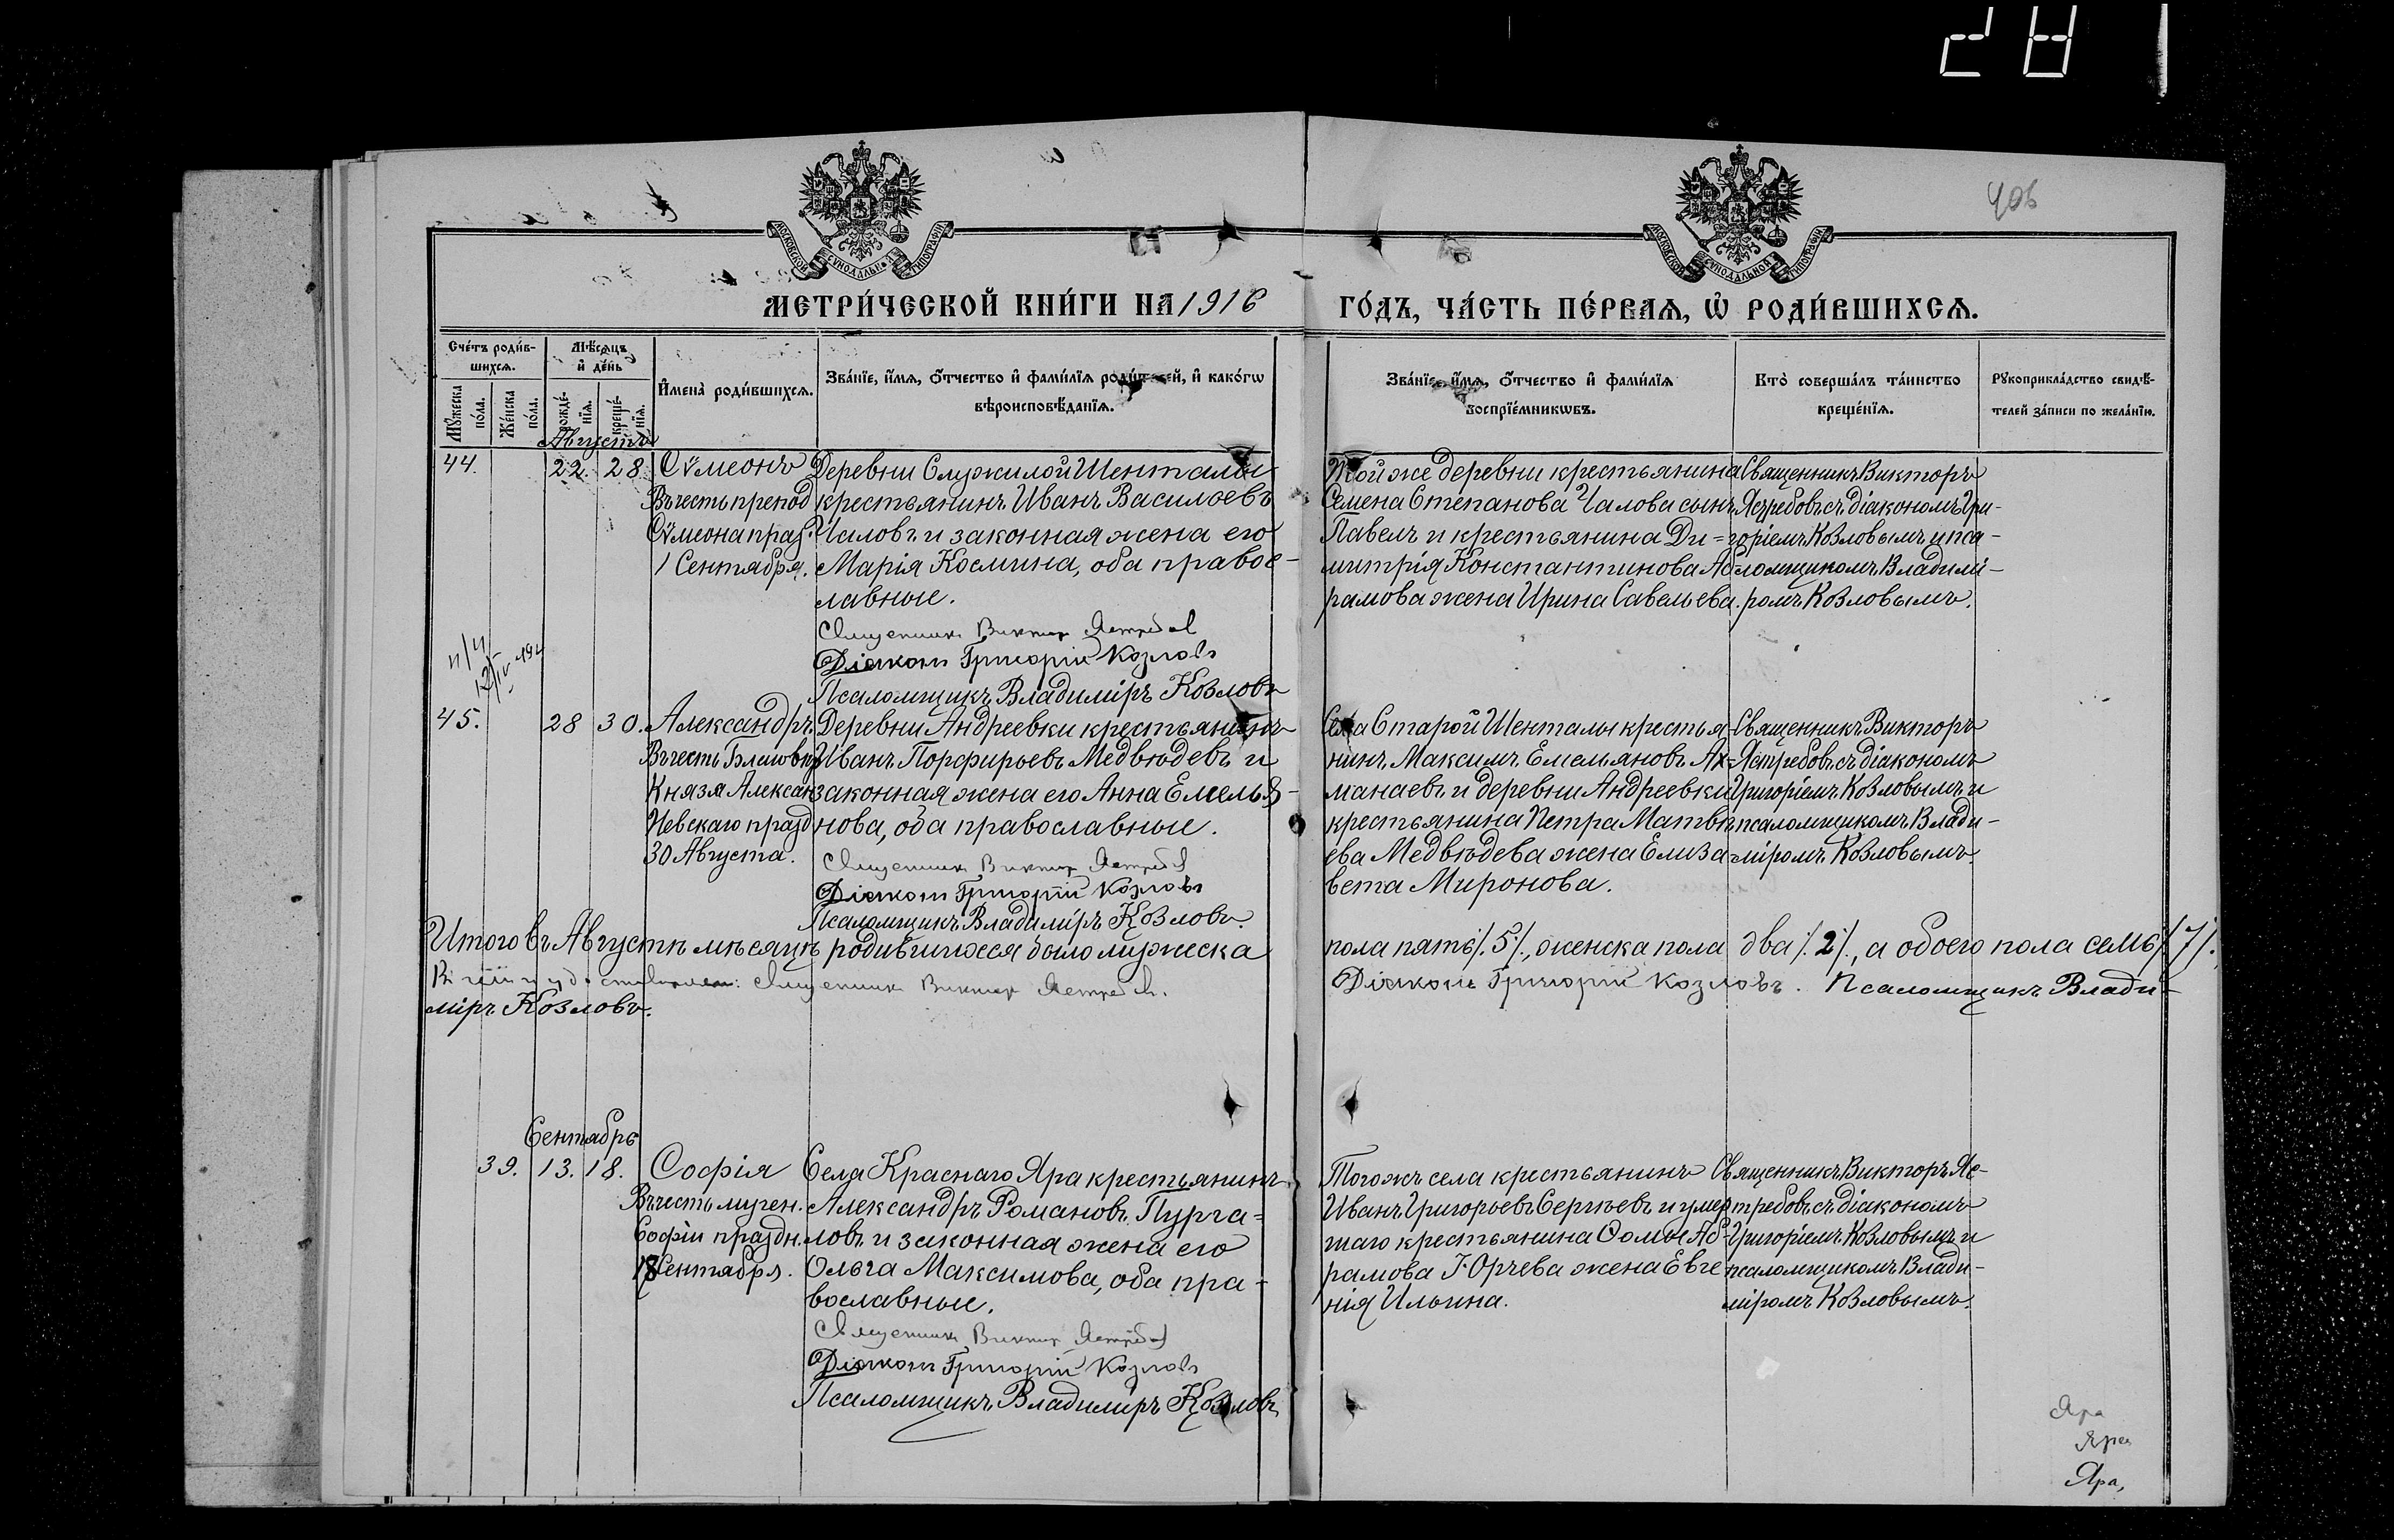 281
406
МОСКОВСКОЙ СѴНОДАЛЬНОЙ ТИПОГРАФІИ
МОСКОВСКОЙ СѴНОДАЛЬНОЙ ТИПОГРАФІИ
МЕТРИ́ЧЕСКОЙ КНИ́ГИ НА 1916 ГО́ДЪ, ЧА́СТЬ ПЕ́РВАѦ, Ѡ҆ РОДИ́ВШИХСѦ.
Сче́тъ роди́в-
шихсѧ.
Мꙋ́жеска по́ла.
Же́нска по́ла.
Мѣ́сѧцъ
и҆ де́нь
рожде́-нїѧ.
креще́-нїѧ.
И҆мена̀ роди́вшихсѧ.
Зва́нїе, и҆́мѧ, ѻ҆́тчество и҆ фами́лїѧ роди́телей, и҆ како́гѡ
вѣроисповѣ́данїѧ.
Зва́нїе, и҆́мѧ, ѻ҆́тчество и҆ фами́лїѧ
воспрїе́мникѡвъ.
Кто̀ соверша́лъ та́инство
креще́нїѧ.
Рꙋкоприкла́дство свидѣ́-
телей за́писи по жела́нїю.
Августъ
44.
22. 28
Сѵмеонъ
Въ честь препод
Сѵмеона празд.
1 Сентября.
Деревни Служилой Шенталы
крестьянинъ Иванъ Васильевъ
Чаловъ и законная жена его
Марія Космина, оба правос-
лавные.
Священникъ Викторъ Ястребов
Діаконъ Григорій Козловъ
Псаломщикъ Владиміръ Козловъ
Той же деревни крестьянина
Семена Степанова Чалова сынъ
Павелъ и крестьянина Ди=
митрія Константинова Аб
рамова жена Ирина Савельева.
Священникъ Викторъ
Ястребовъ съ діакономъ Гри-
горіемъ Козловымъ и пса-
ломщикомъ Владимі-
ромъ Козловымъ.
45.
28 30.
Александръ.
Въ честь Благовѣр
Князя Алексан
Невскаго празд
30 Августа.
Деревни Андреевки крестьянинъ
Иванъ Порфирьевъ Медвѣдевъ и
законная жена его Анна Емелья-
нова, оба православные.
Священникъ Викторъ Ястребов
Діаконъ Григорій Козловъ
Псаломщикъ Владиміръ Козловъ.
Села Старой Шенталы крестья-
нинъ Максимъ Емельяновъ Ах-
манаевъ и деревни Андреевки
крестьянина Петра Матвѣ
ева Медвѣдева жена Елиза-
вета Миронова.
Священникъ Викторъ
Ястребовъ съ діакономъ
Григоріемъ Козловымъ и
псаломщикомъ Влади-
міромъ Козловымъ.
Итого въ Августѣ мѣсяцѣ родившихся было мужеска пола пять ⁒ 5 ⁒, женска пола два ⁒ 2 ⁒, а обоего пола семь ⁒ 7 ⁒.
Священникъ Викторъ Ястребов. Діаконъ Григорій Козловъ. Псаломщикъ Влади-
міръ Козловъ.
Сентябрь
39. 13. 18.
Софія
Въ честь мучен.
Софіи праздн.
18 Сентября.
Села Краснаго Яра крестьянинъ
Александръ Романовъ Пурга=
ловъ и законная жена его
Ольга Максимова, оба пра-
вославные.
Священникъ Викторъ Ястребов
Діаконъ Григорій Козловъ
Псаломщикъ Владиміръ Козловъ
Тогожъ села крестьянинъ
Иванъ Григорьевъ Сергѣевъ и умер
шаго крестьянина Фомы Аб-
рамова Юрчева жена Евге
нія Ильина.
Священникъ Викторъ Яс-
требовъ съ діакономъ
Григоріемъ Козловымъ и
псаломщикомъ Влади-
міромъ Козловымъ.
Яра
Яра
Яра,